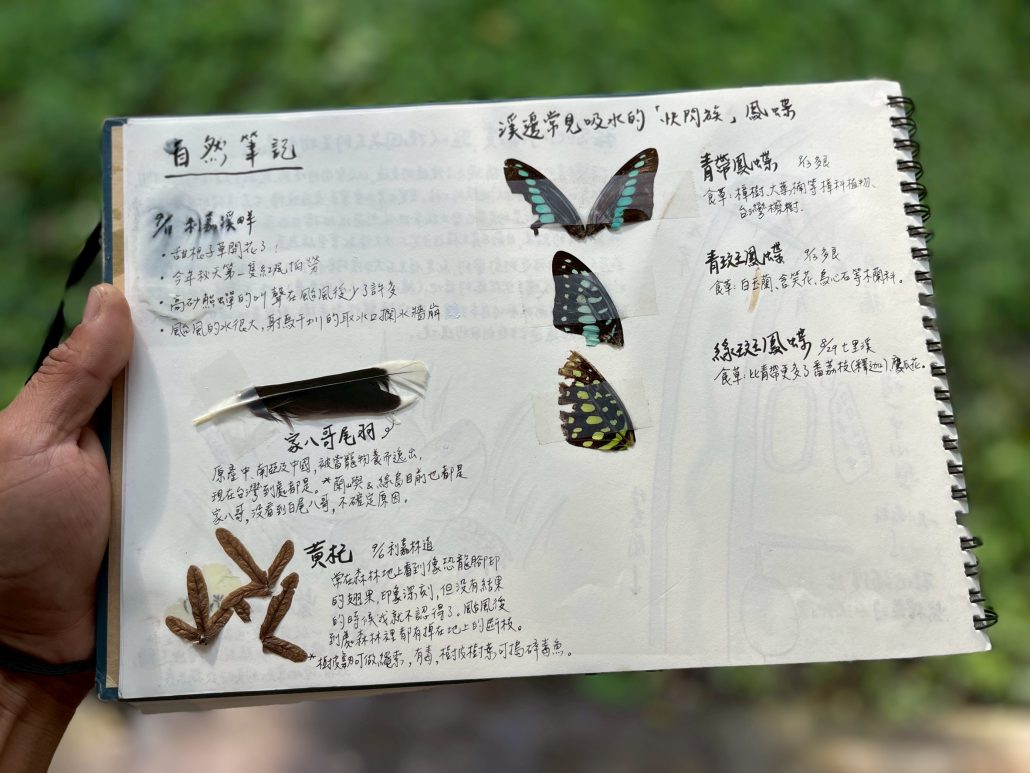 自然筆記
9/1 利嘉溪畔
・甜根子草開花了!
・今年秋天第一隻紅尾伯勞
・高砂熊蟬的叫聲在颱風後少了許多
・颱風的水很大,射馬干圳的取水口攔水牆崩
家八哥尾羽
原產中、南亞及中國,被當寵物養而逸出,
現在台灣到處都是。*蘭嶼&綠島目前也都是
家八哥,沒看到白尾八哥,不確定原因。
黃杞 9/6 利嘉林道
常在森林地上看到像恐龍腳印
的翅果,印象深刻,但沒有結果
的時候我就不認得了。颱風後
到處森林裡都有掉在地上的斷枝。
*樹皮韌可做繩索,有毒,樹皮樹葉可搗碎毒魚。
溪邊常見吸水的「快閃族」鳳蝶
青帶鳳蝶 9/3 多良
食草:樟樹、大葉楠等樟科植物、
台灣檫樹.
青斑鳳蝶 9/3 多良
食草:白玉蘭、含笑花、烏心石等木蘭科。
綠斑鳳蝶 8/29 七里溪
食草:比青帶更多了番荔枝(釋迦)、鷹爪花。